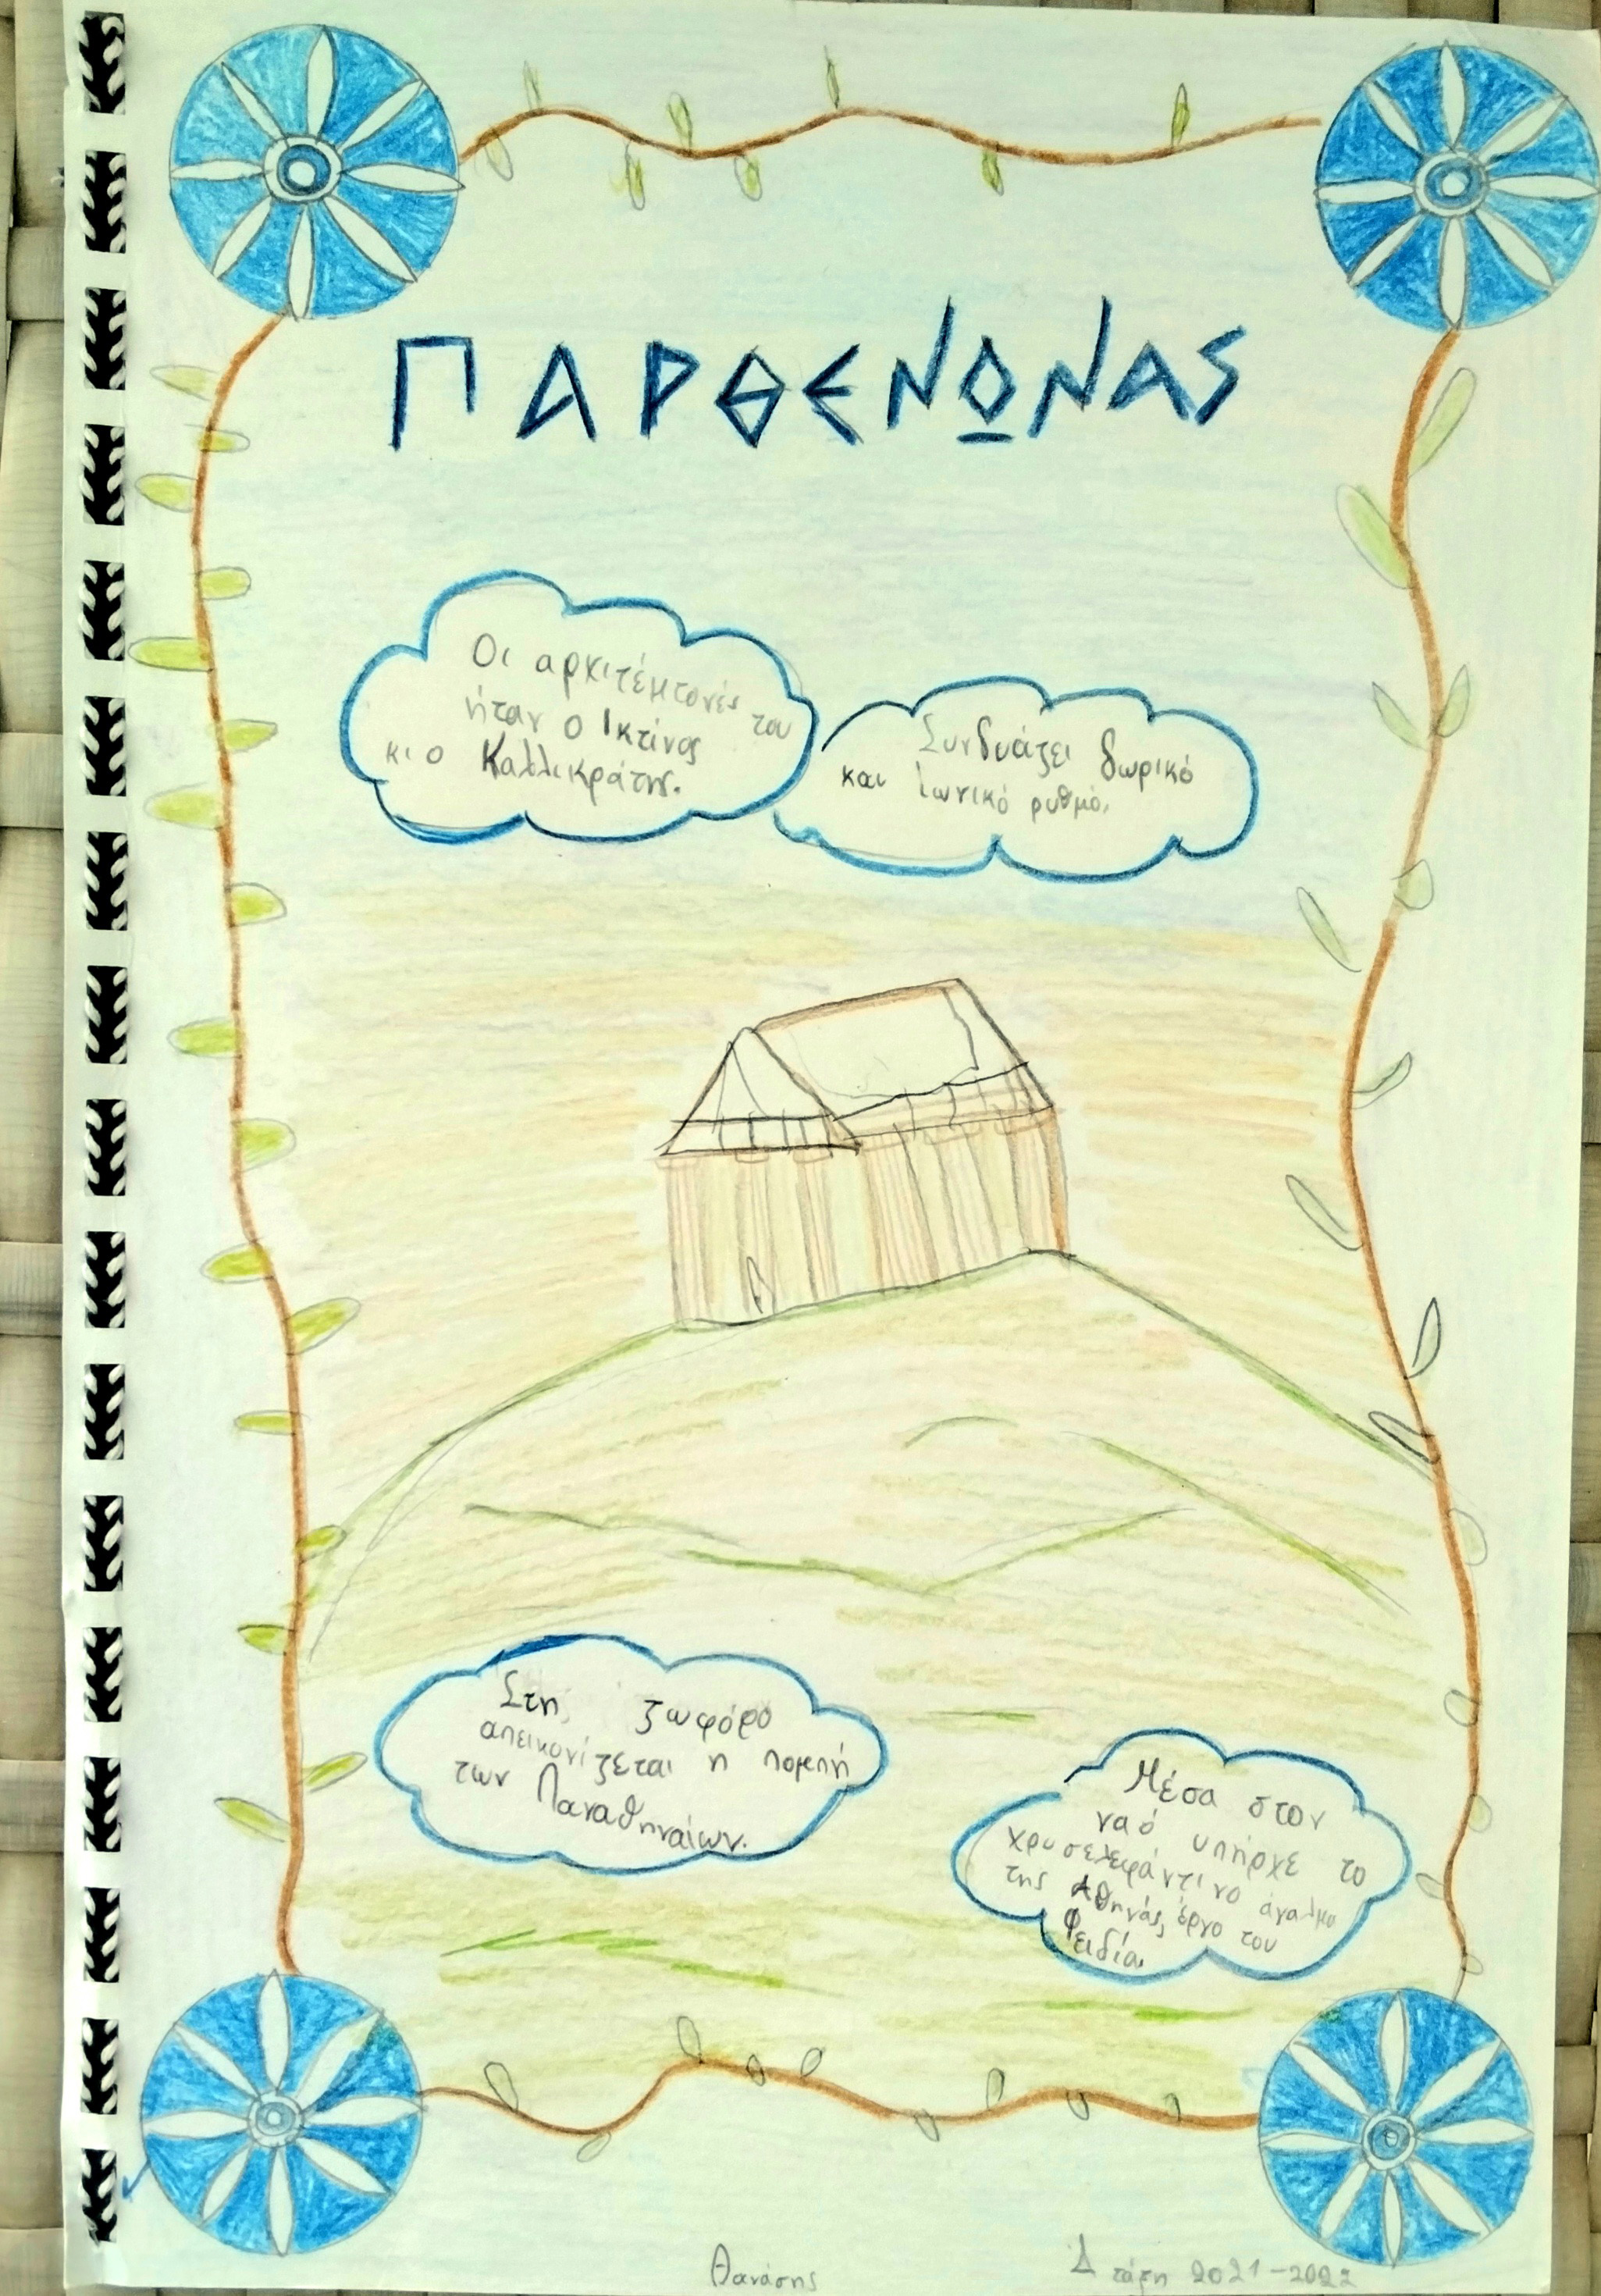 ΠΑΡΘΕΝΩΝΑΣ
Οι αρχιτέκτονές του
ήταν ο Ικτίνος
κι ο Καλλικράτης.
Συνδυάζει δωρικό
και ιωνικό ρυθμό.
Στη ζωφόρο
απεικονίζεται η πομπή
των Παναθηναίων.
Μέσα στον
ναό υπήρχε το
χρυσελεφάντινο άγαλμα
της Αθηνάς, έργο του
Φειδία.
Θανάσης
Δ τάξη 2021-2022